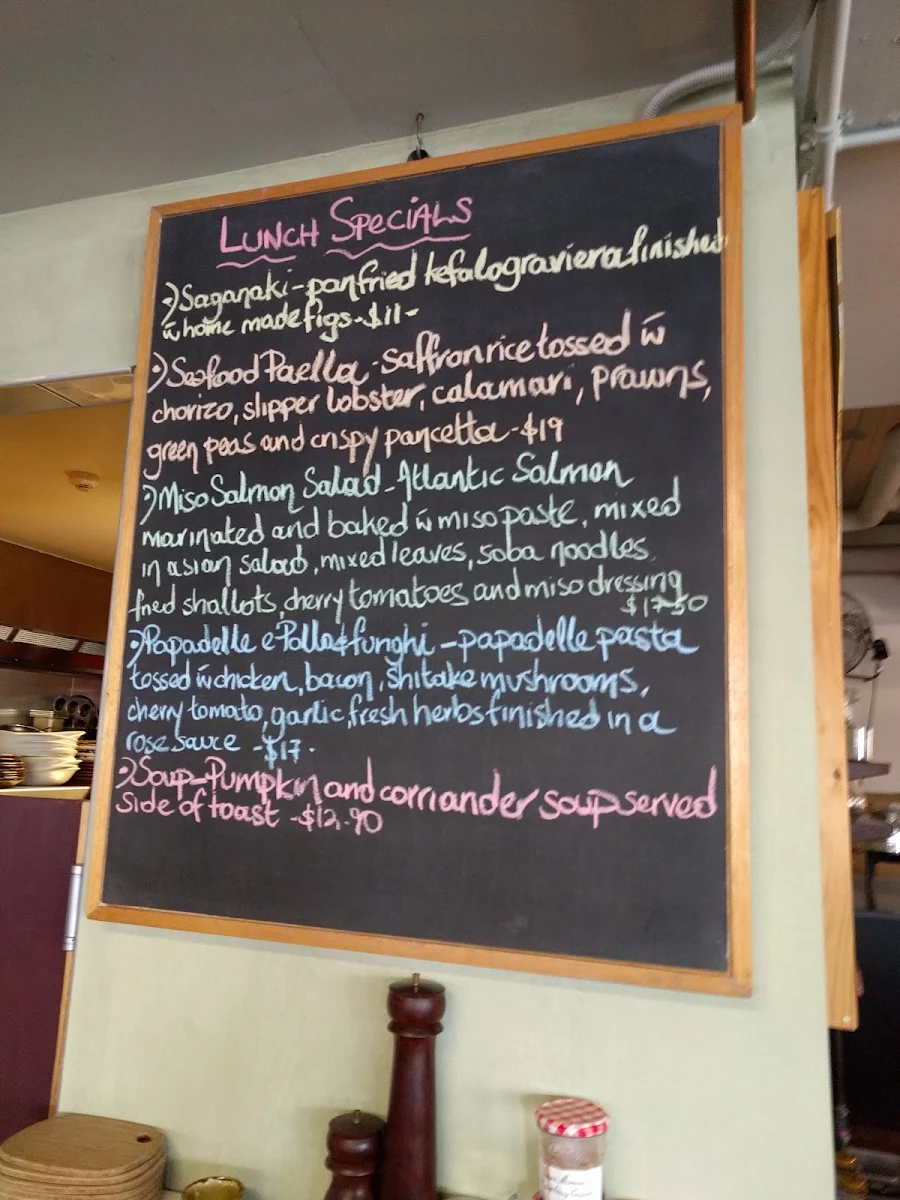 LUNCH SPECIALS
Saganaki - panfried kefalograviera finished
w̄ home made figs - $11 -
Seafood Paella - saffron rice tossed w̄
chorizo, slipper lobster, calamari, prawns,
green peas and crispy pancetta - $19
Miso Salmon Salad - Atlantic Salmon
marinated and baked w̄ miso paste, mixed
in asian salad, mixed leaves, soba noodles
fried shallots, cherry tomatoes and miso dressing
$17.50
Papadelle e Pollo & funghi - papadelle pasta
tossed w̄ chicken, bacon, shitake mushrooms,
cherry tomato, garlic, fresh herbs finished in a
rose sauce - $17.
Soup - Pumpkin and corriander soup served
side of toast - $12.90